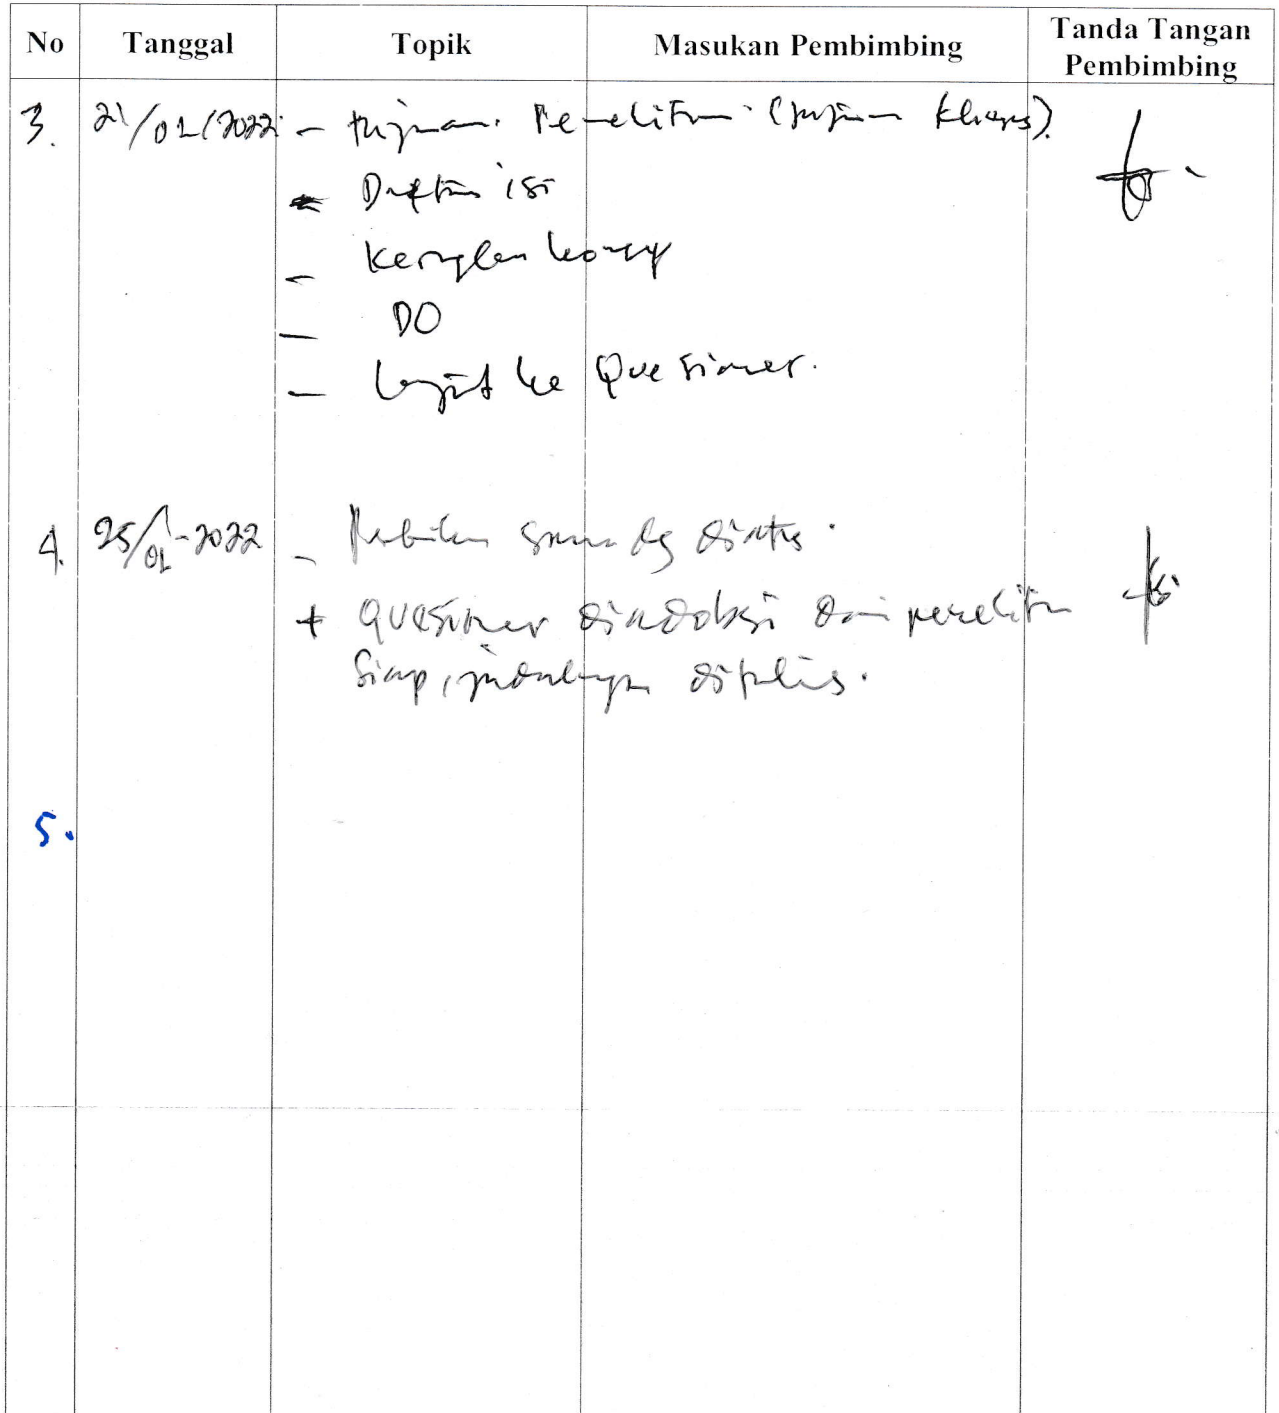 No Tanggal Topik Masukan Pembimbing Tanda Tangan Pembimbing
3. 21/01/2022 - tujuan Penelitian (tujuan khusus).
- Daftar isi
- Kerangka konsep
- DO
- Lanjut ke Quesioner.
4. 25/01-2022 - Perbaikan sama dg diatas.
+ Quesioner diadobsi dari penelitian
siapa, judulnya ditulis.
5.